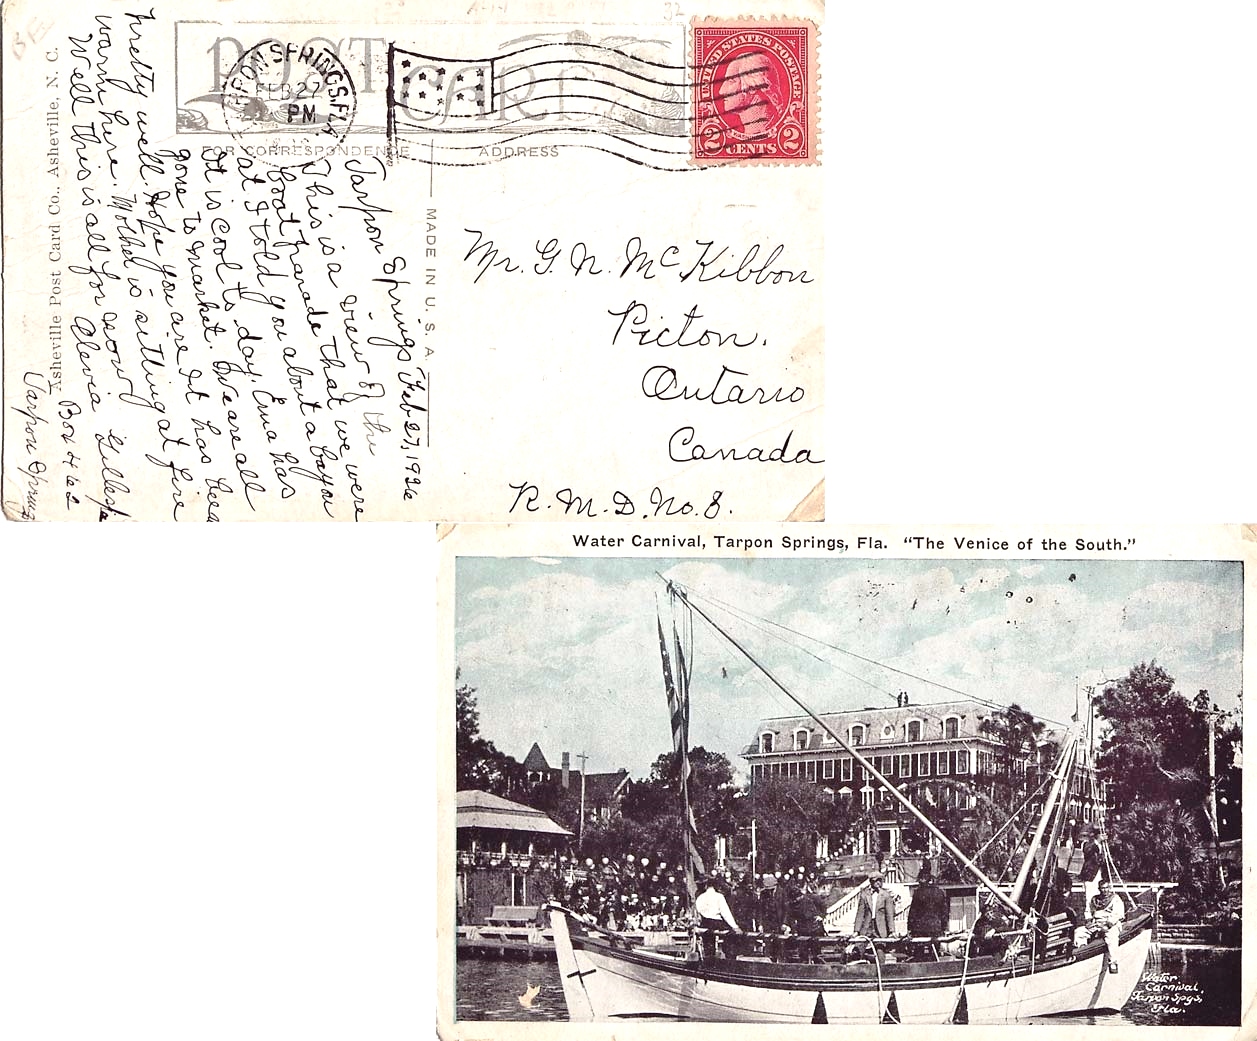 POST CARD
TARPON SPRINGS, FLA.
FEB 27
PM
UNITED STATES POSTAGE
2 CENTS 2
FOR CORRESPONDENCE
ADDRESS
MADE IN U. S. A.
Asheville Post Card Co., Asheville, N. C.
Tarpon Springs Feb 27, 1926
This is a view of the
boat parade that we were
at I told you about a bayou
It is cool to-day. Erma has
gone to market. We are all
pretty well. Hope you are It has been
warm here. Mother is sitting at fire
Well this is all for now
Alevia Gillespie
Box 462
Tarpon Springs
Mr. G. N. McKibbon
Picton.
Ontario
Canada
R.M.D. No. 8.
Water Carnival, Tarpon Springs, Fla. "The Venice of the South."
Water
Carnival,
Tarpon Spgs,
Fla.